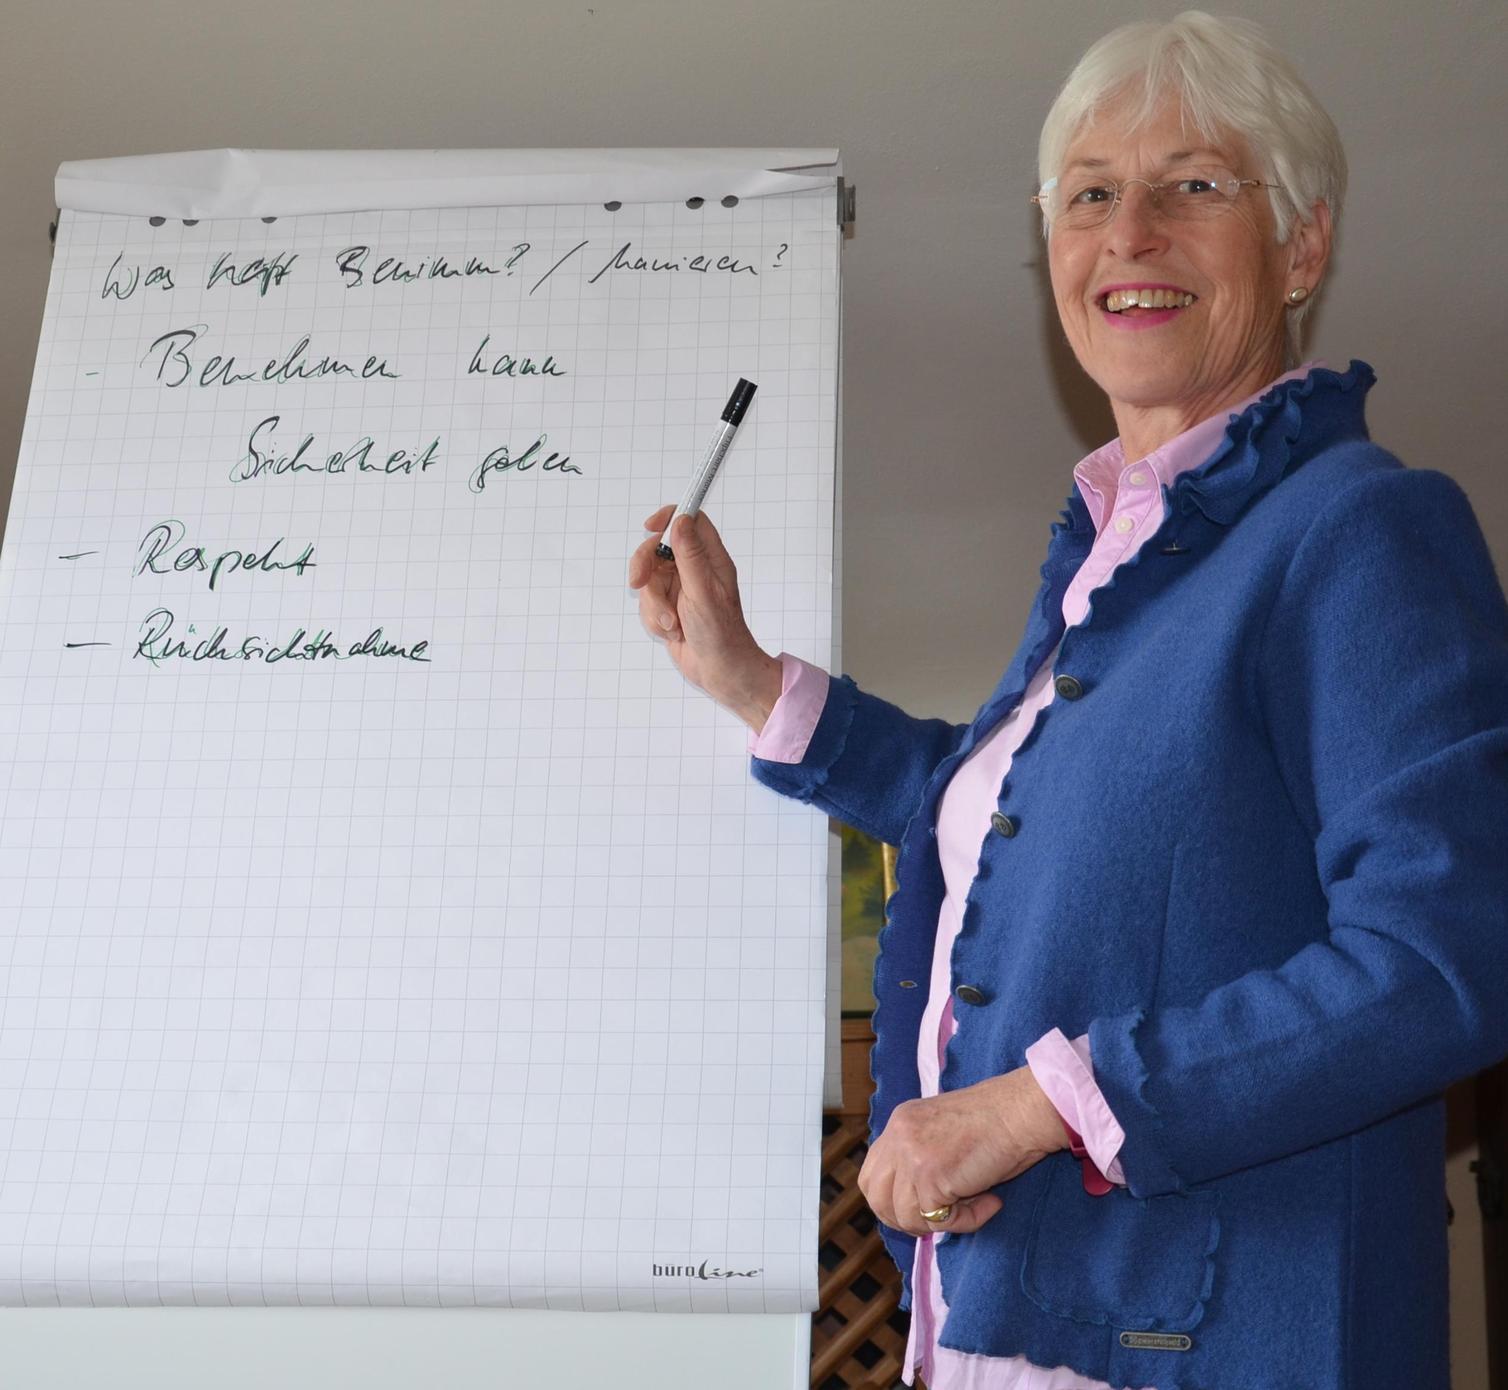 Was heißt Benimm? / Manieren?
- Benehmen kann
Sicherheit geben
- Respekt
- Rücksichtnahme
büroLine